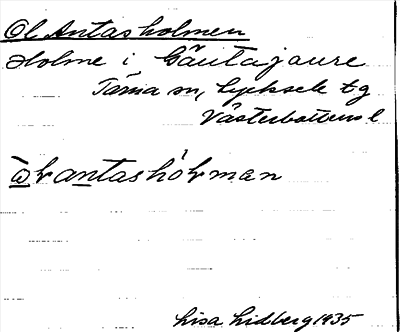 Ol Antasholmen
Holme i Gäutajaure
Tärna sn, Lycksele tg
Västerbottens l
ὼlantashòlman
Lisa Lidberg 1935